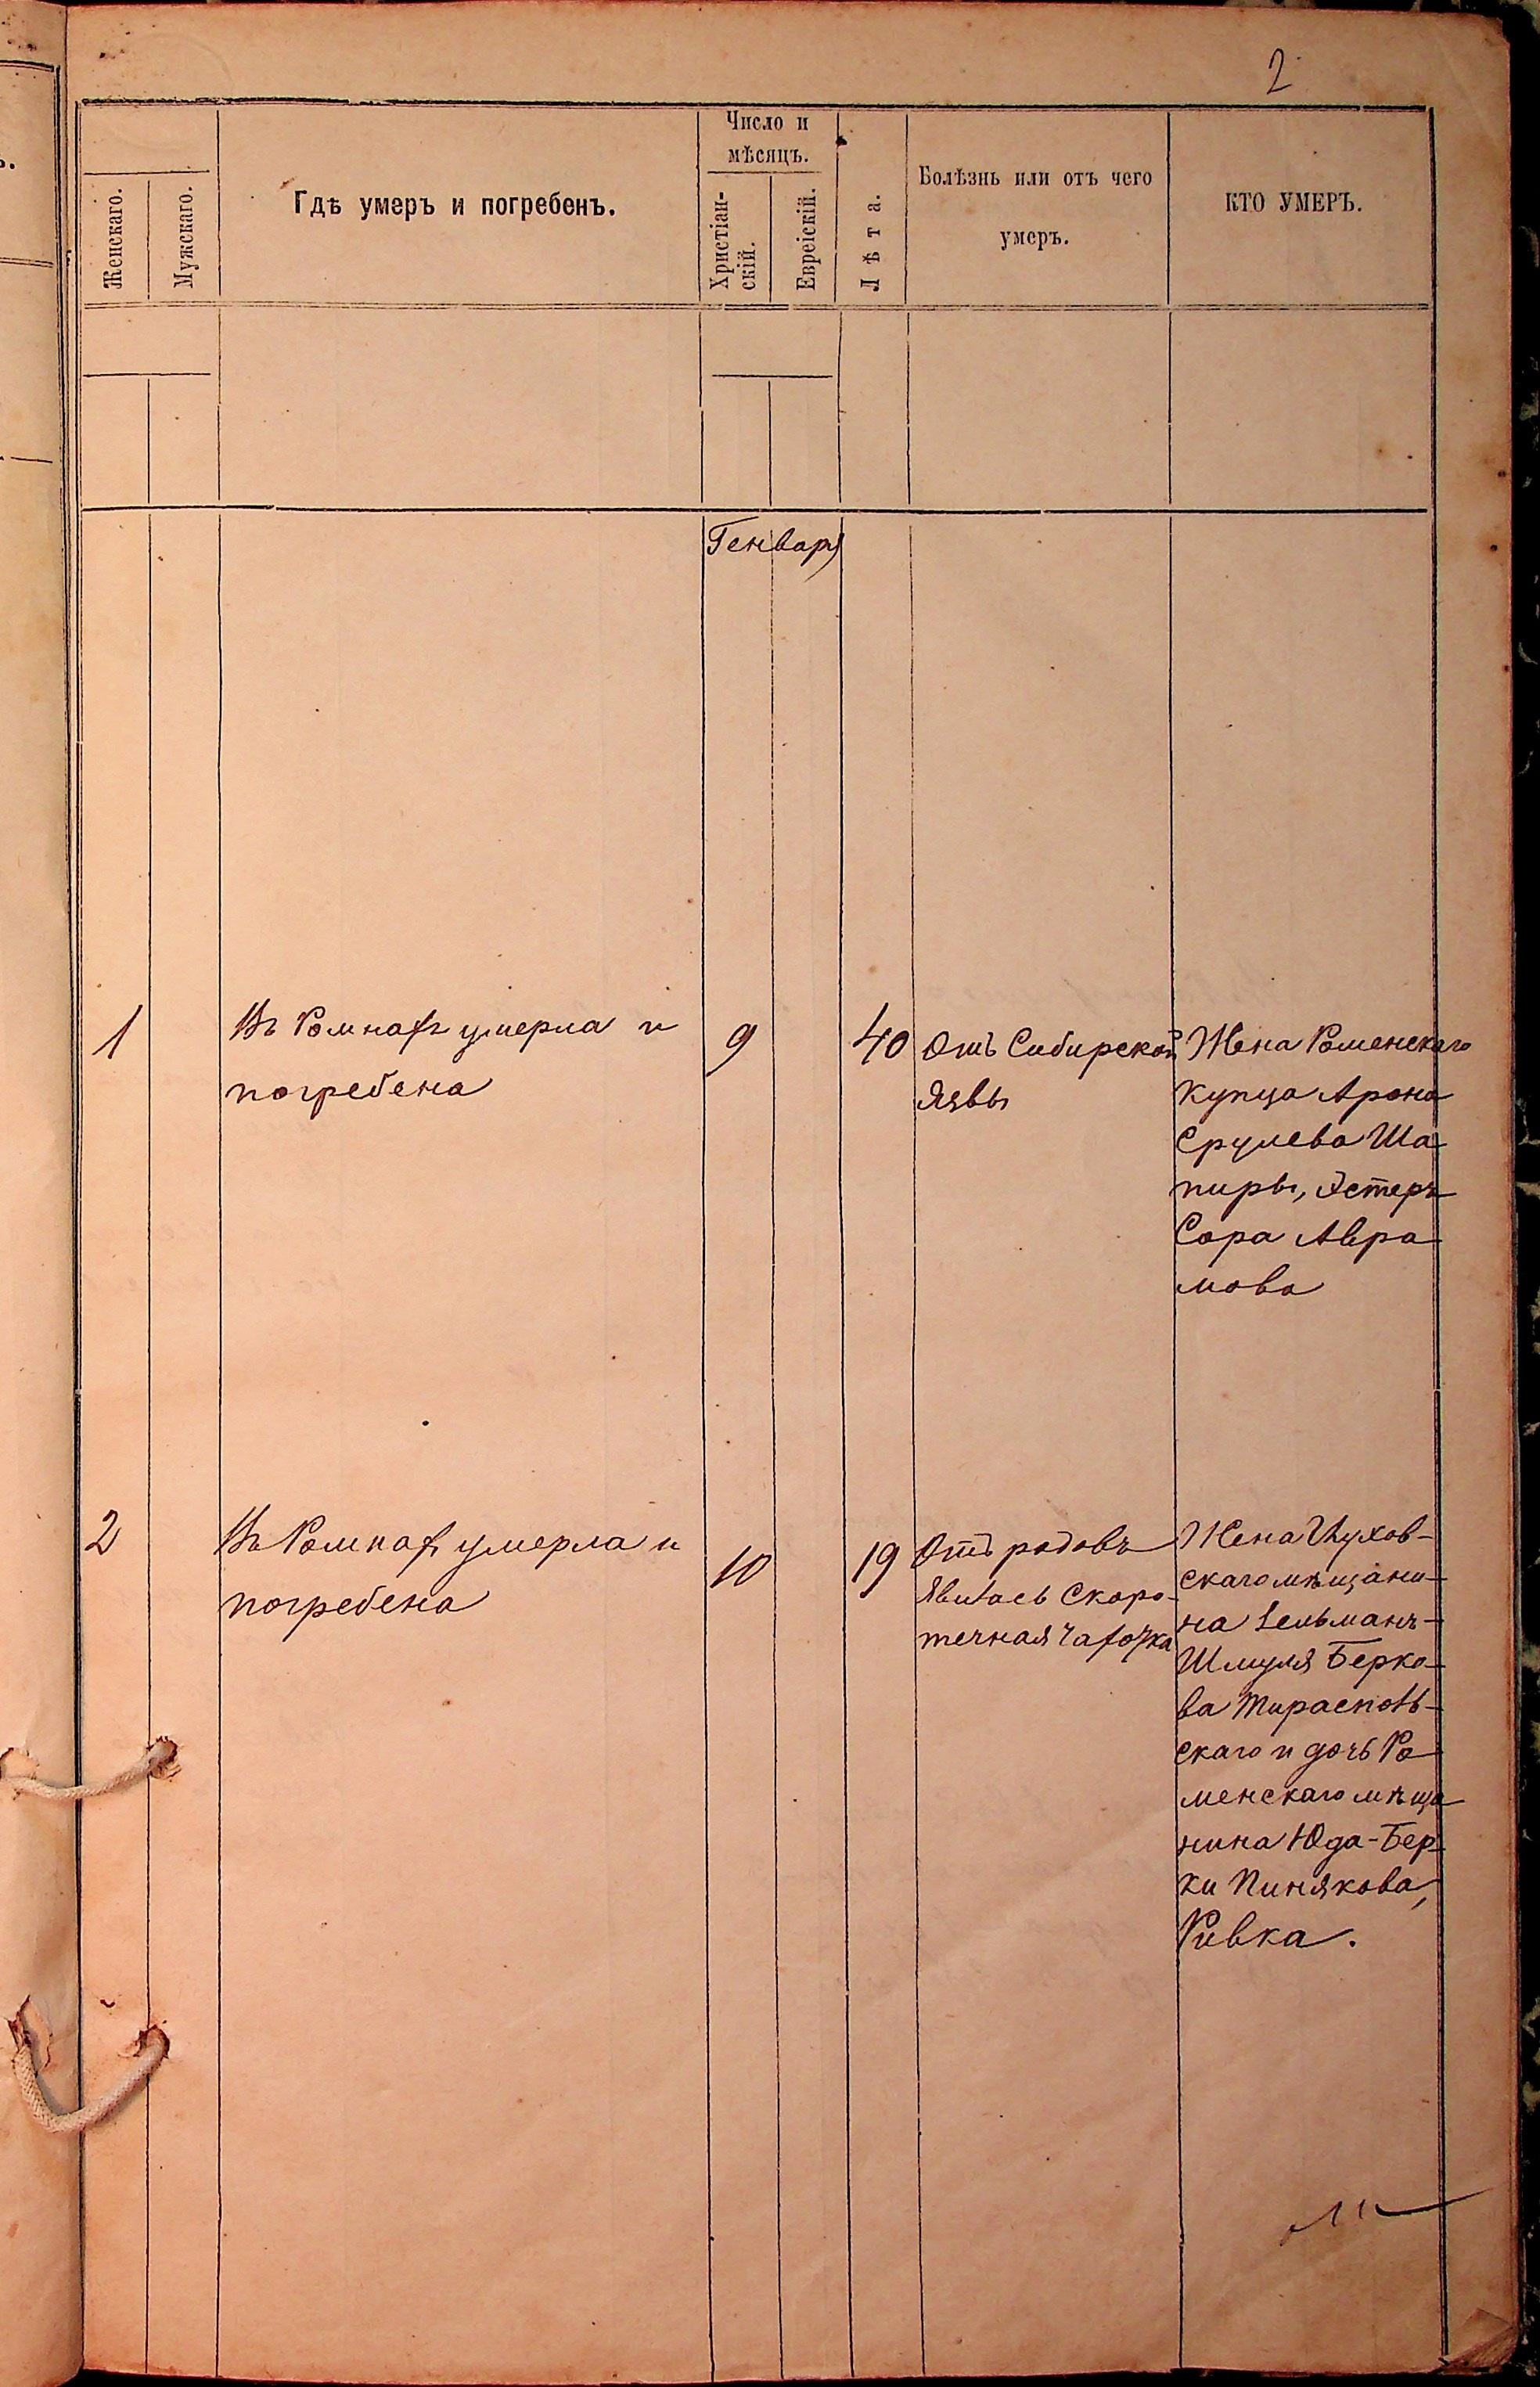 2
Женскаго.
Мужскаго.
Гдѣ умеръ и погребенъ.
Число и
мѣсяцъ.
Христіан-
скій.
Евреіскій.
Лѣта.
Болѣзнь или отъ чего
умеръ.
КТО УМЕРЪ.
Генваря
1
Въ Ромнахъ умерла и
погребена
9
40
Отъ Сибирской
Язвы
Жена Роменскаго
Купца Арона
Срулева Ша
пиры, Эстеръ
Сора Авра
мова
2
Въ Ромнах умерла и
погребена
10
19
Отъ родовъ
Явилась Скоро-
течная Чахотка
Жена Глухов-
скаго мѣщани-
на Зельманъ-
Шмуля Берко-
ва Тираспoль-
скаго и дочь Ро
менскаго мѣща
нина Юда-Бер
ки Пинякова,
Ривка.